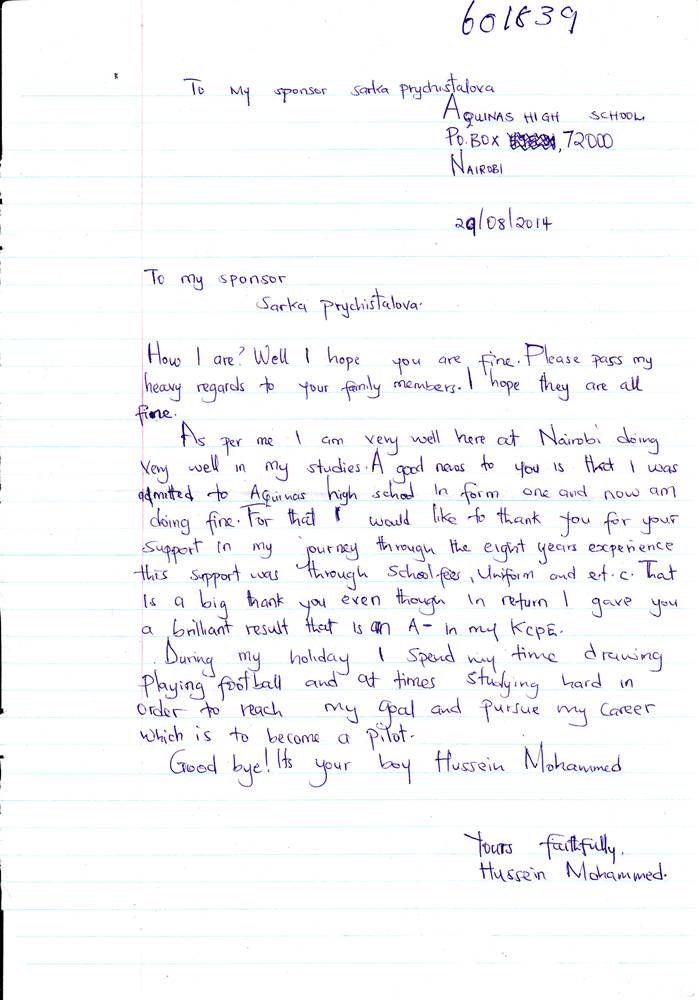 601839
To My sponsor Sarka prychistalova
AQUINAS HIGH SCHOOL
PO.BOX , 72000
NAIROBI
29/08/2014
To my sponsor
Sarka Prychistalova.
How I are? Well I hope you are fine. Please pass my
heavy regards to your family members. I hope they are all
fine.
As per me I am very well here at Nairobi doing
very well in my studies. A good news to you is that I was
admitted to Aquinas high school in form one and now am
doing fine. For that I would like to thank you for your
support in my journey through the eight years experience
this support was through school fees, Uniform and et.c. That
is a big thank you even though in return I gave you
a brilliant result that is an A- in my KCPE.
During my holiday I spend my time drawing
Playing football and at times studying hard in
order to reach my goal and pursue my career
which is to become a pilot.
Good bye! Its your boy Hussein Mohammed
Yours faithfully,
Hussein Mohammed.